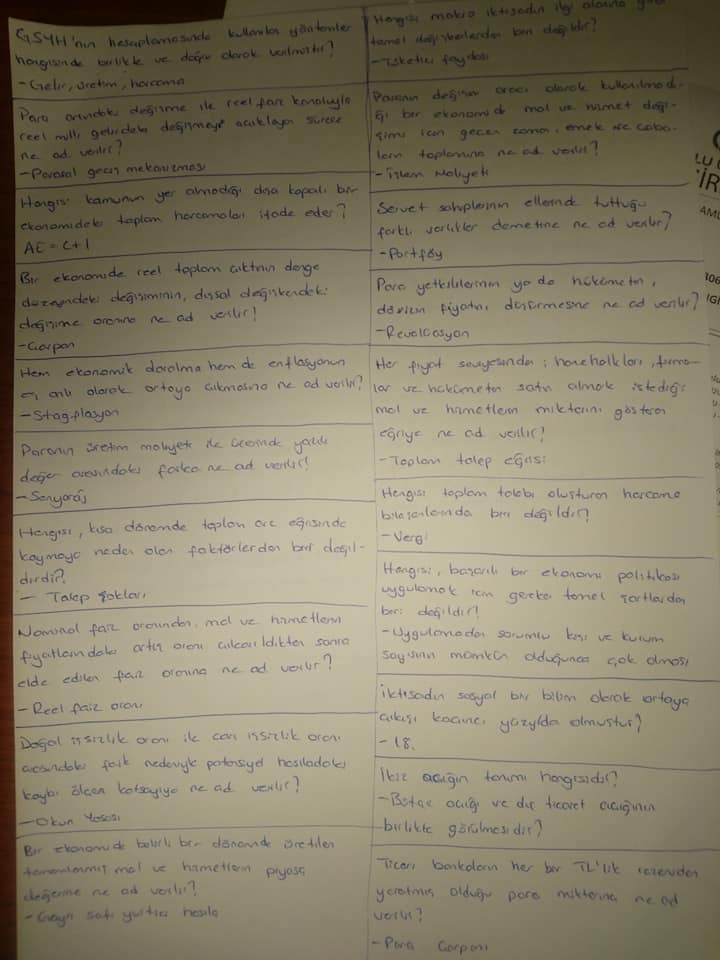 GSYH'nın hesaplamasında kullanılan yöntemler
hangisinde birlikte ve doğru olarak verilmiştir?
- Gelir, üretim, harcama
Para arzındaki değişme ile reel faiz kanalıyla
reel milli gelirdeki değişmeyi açıklayan sürece
ne ad verilir?
- Parasal geçiş mekanizması
Hangisi kamunun yer almadığı dışa kapalı bir
ekonomideki toplam harcamaları ifade eder?
AE = C+I
Bir ekonomide reel toplam çıktının denge
düzeyindeki değişiminin, dışsal değişkendeki
değişime oranına ne ad verilir?
- Çarpan
Hem ekonomik daralma hem de enflasyonun
eş anlı olarak ortaya çıkmasına ne ad verilir?
- Stagflasyon
Paranın üretim maliyeti ile üzerinde yazılı
değer arasındaki farka ne ad verilir?
- Senyoraj
Hangisi, kısa dönemde toplam arz eğrisinde
kaymaya neden olan faktörlerden biri değil-
dir?
- Talep şokları
Nominal faiz oranından, mal ve hizmetlerin
fiyatlarındaki artış oranı çıkarıldıktan sonra
elde edilen faiz oranına ne ad verilir?
- Reel faiz oranı
Doğal işsizlik oranı ile cari işsizlik oranı
arasındaki fark nedeniyle potansiyel hasıladaki
kaybı ölçen katsayıya ne ad verilir?
- Okun Yasası
Bir ekonomide belirli bir dönemde üretilen
tamamlanmış mal ve hizmetlerin piyasa
değerine ne ad verilir?
- Gayri safi yurtiçi hasıla
Hangisi makro iktisadın ilgi alanına giren
temel değişkenlerden biri değildir?
- Tüketici faydası
Paranın değişim aracı olarak kullanılmadı-
ğı bir ekonomide mal ve hizmet deği-
şimi için geçen zaman, emek ve çaba-
ların toplamına ne ad verilir?
- İşlem Maliyeti
Servet sahiplerinin ellerinde tuttuğu
farklı varlıklar demetine ne ad verilir?
- Portföy
Para yetkililerinin ya da hükümetin,
dövizin fiyatını düşürmesine ne ad verilir?
- Revalüasyon
Her fiyat seviyesinde; hane halkları, firma-
lar ve hükümetin satın almak istediği
mal ve hizmetlerin miktarını gösteren
eğriye ne ad verilir?
- Toplam talep eğrisi
Hangisi toplam talebi oluşturan harcama
bileşenlerinde biri değildir?
- Vergi
Hangisi, başarılı bir ekonomi politikası
uygulamak için gereken temel şartlardan
biri değildir?
- Uygulamadan sorumlu kişi ve kurum
sayısının mümkün olduğunca çok olması
İktisadın sosyal bir bilim olarak ortaya
çıkışı kaçıncı yüzyılda olmuştur?
- 18.
İkiz açığın tanımı hangisidir?
- Bütçe açığı ve dış ticaret açığının
birlikte görülmesidir?
Ticari bankaların her bir TL'lik rezervden
yaratmış olduğu para miktarına ne ad
verilir?
- Para Çarpanı